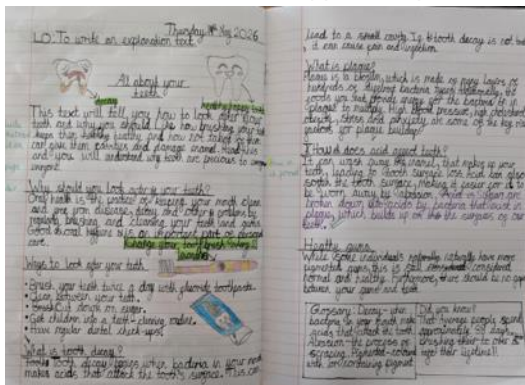 Thursday May 2026
LO: To write an explanation text.
All about your
teeth
decay
healthy happy tooth
This text will tell you how to look after your
teeth and why you should. Like how brushing your teeth
keeps them healthy, and how not taking of them
can give them cavities and damage enamel. Read this
and you will understand why teeth are precious to
everyone.
Why should you look after your teeth?
Oral health is the practice of keeping your mouth clean
and free from disease, decay and other problems by
regularly brushing and cleaning your teeth and gums.
Good dental hygiene is an important part of personal
care.
Change your toothbrush every 3
months
Ways to look after your teeth
• Brush your teeth twice a day with fluoride toothpaste.
• Clean between your teeth.
• Cut down on sugar.
• Get children into a teeth-cleaning routine.
• Have regular dental check-ups!
What is tooth decay?
Tooth decay begins when bacteria in your mouth
makes acids that attack the tooth's surface. This can
lead to a small cavity. If tooth decay is not
it can cause pain and infection.
What is plaque?
Plaque is a biofilm, which is made of many layers of
hundreds of different bacteria types. Additionally, the
foods you eat provide energy for the bacteria in
plaque to multiply. High blood pressure, high cholesterol,
obesity, stress and anxiety are some of the key risk
factors for plaque buildup.
How does acid affect teeth?
It can wash away the enamel, that makes up your
teeth, leading to tooth surface loss. Acid can also
soften the tooth surface, making it easier for it to
be worn away by abrasion.
broken down into acids by bacteria that exist in
plaque, which builds up on the surfaces of our
teeth.
Healthy gums
While some individuals naturally have more
pigmented gums, this is still considered
normal and healthy. Furthermore, there should be no gaps
between your gums and teeth.
Glossary: Decay - when
bacteria in your mouth make
acids that attack the tooth.
Abrasion - the process of
scraping. Pigmented - coloured
with or containing pigment
Did you know?
That average people spend
approximately days
brushing their teeth over
their lifetime!!